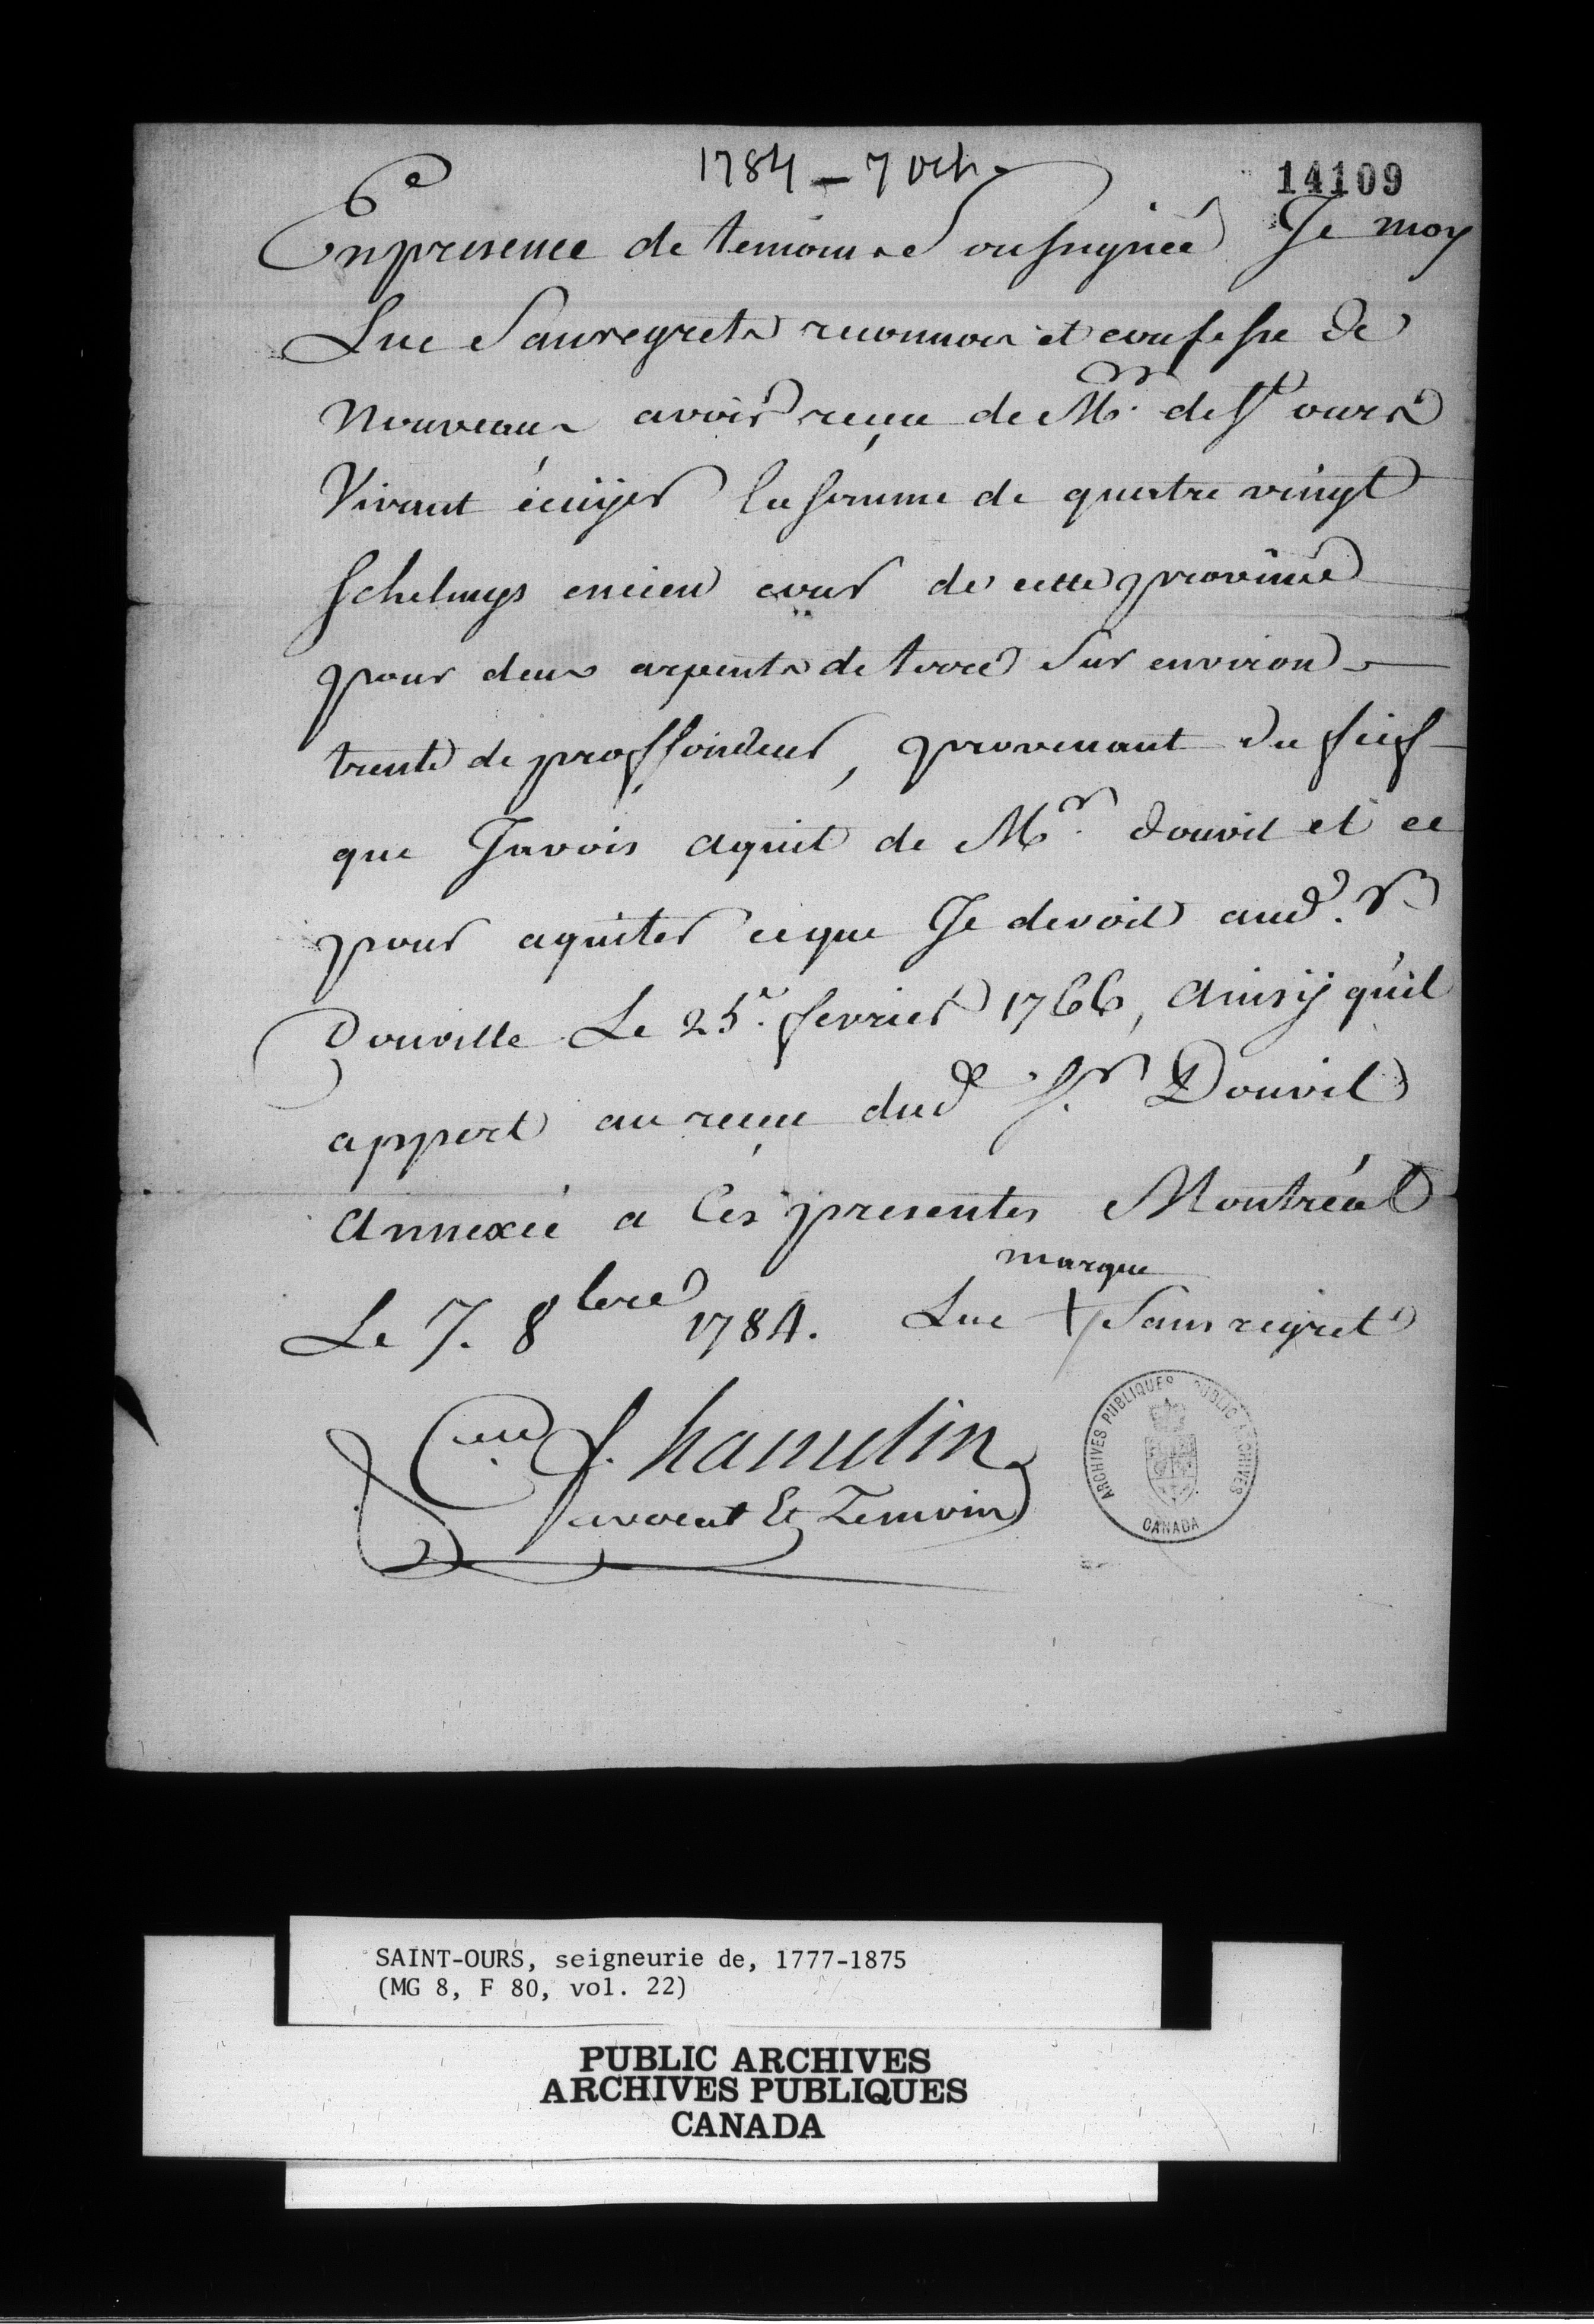 1784 – 7 Oct.
14109
En presence de temoins Soussignéé Je moy
Luc Sansregrets reconnois et confesse de
nouveaux avoir reçue de Mr. de St ours
Vivant écuÿer la somme de quatre vingt
schelings encien cour de cette province
pour deux arpents de terre Sur environ
trente de proffondeur, provenant du fief
que Javois aquit de Mr. douvil et ce
pour aquiter ce que Je devoit aud. Sr
Douville Le 25e. fevrier 1766, ainsÿ qu'il
appert au reçue dud Sr. Douvil
annexéé a Ces presentes Montréal
marque
Le 7. 8bre 1784. Luc + Sansregret
f. hamelin
avocat Et Temoin
ARCHIVES PUBLIQUES PUBLIC ARCHIVES
CANADA
SAINT-OURS, seigneurie de, 1777-1875
(MG 8, F 80, vol. 22)
PUBLIC ARCHIVES
ARCHIVES PUBLIQUES
CANADA